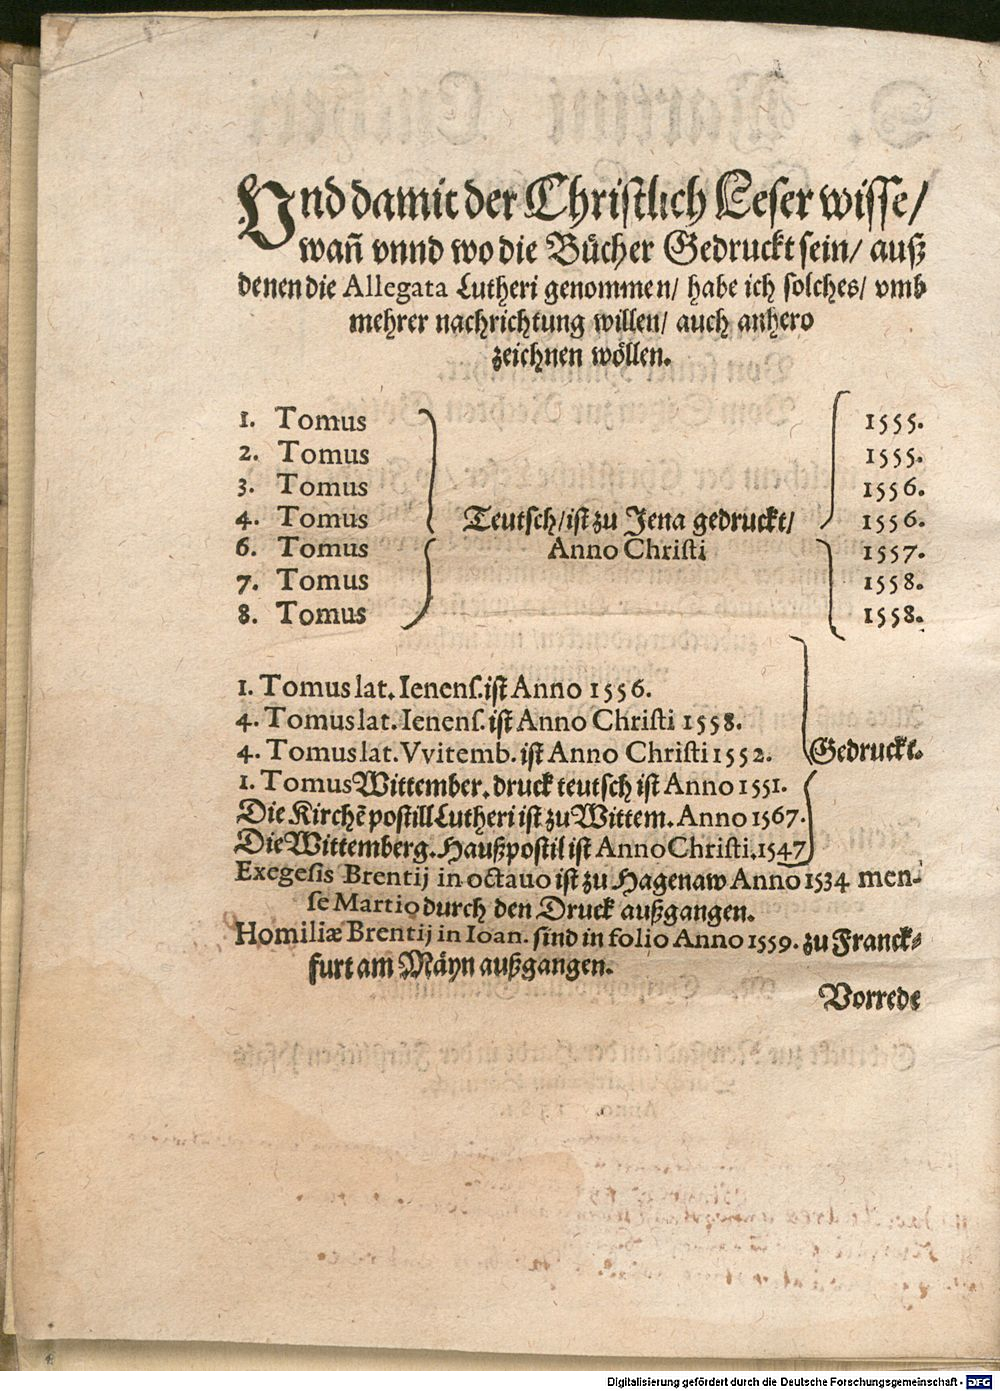 Vnd damit der Christlich Leser wisse/
wañ vnnd wo die Bücher Gedruckt sein/ auß
denen die Allegata Lutheri genommen/ habe ich solches/ vmb
mehrer nachrichtung willen/ auch anhero
zeichnen wöllen.
1. Tomus 1555.
2. Tomus 1555.
3. Tomus 1556.
4. Tomus Teutsch/ ist zu Jena gedruckt/ 1556.
6. Tomus Anno Christi 1557.
7. Tomus 1558.
8. Tomus 1558.
1. Tomus lat. Ienens. ist Anno 1556.
4. Tomus lat. Ienens. ist Anno Christi 1558.
4. Tomus lat. Vvitemb. ist Anno Christi 1552. Gedruckt.
1. Tomus Wittember. druck teutsch ist Anno 1551.
Die Kirchẽ postill Lutheri ist zu Wittem. Anno 1567.
Die Wittemberg. Haußpostil ist Anno Christi. 1547
Exegesis Brentij in octauo ist zu Hagenaw Anno 1534 men-
se Martio durch den Druck außgangen.
Homiliæ Brentij in Ioan. sind in folio Anno 1559. zu Franck-
furt am Mäyn außgangen.
Vorrede
Digitalisierung gefördert durch die Deutsche Forschungsgemeinschaft - DFG